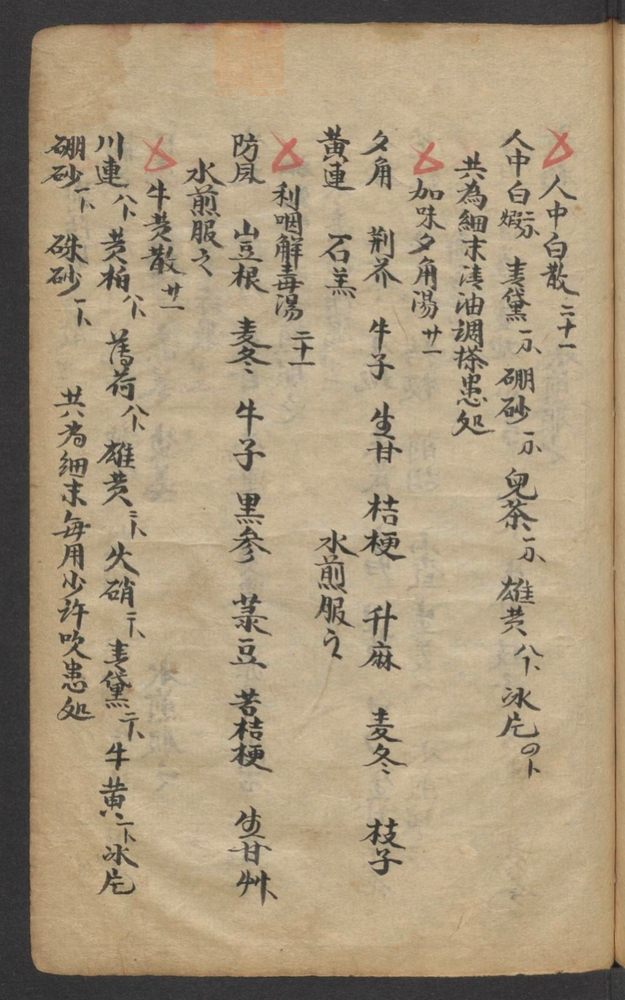 人中白散 二十一
人中白煅一分 青黛一分 硼砂一分 皃茶一分 雄黄八卜 冰片の卜
共為細末清油調搽患処
加味夕角湯 廿一
夕角 荆芥 牛子 生甘 桔梗 升麻 麦冬 枝子
黄連 石羔 水煎服之
利咽解毒湯 二十一
防風 山豆根 麦冬 牛子 黒参 菉豆 苦桔梗 生甘艸
水煎服之
牛黄散 廿一
川連八卜 黄柏八卜 薄荷八卜 雄黄三卜 火硝二卜 青黛二卜 牛黄一卜 冰片
硼砂一卜 硃砂一卜 共为細末每用少许吹患処